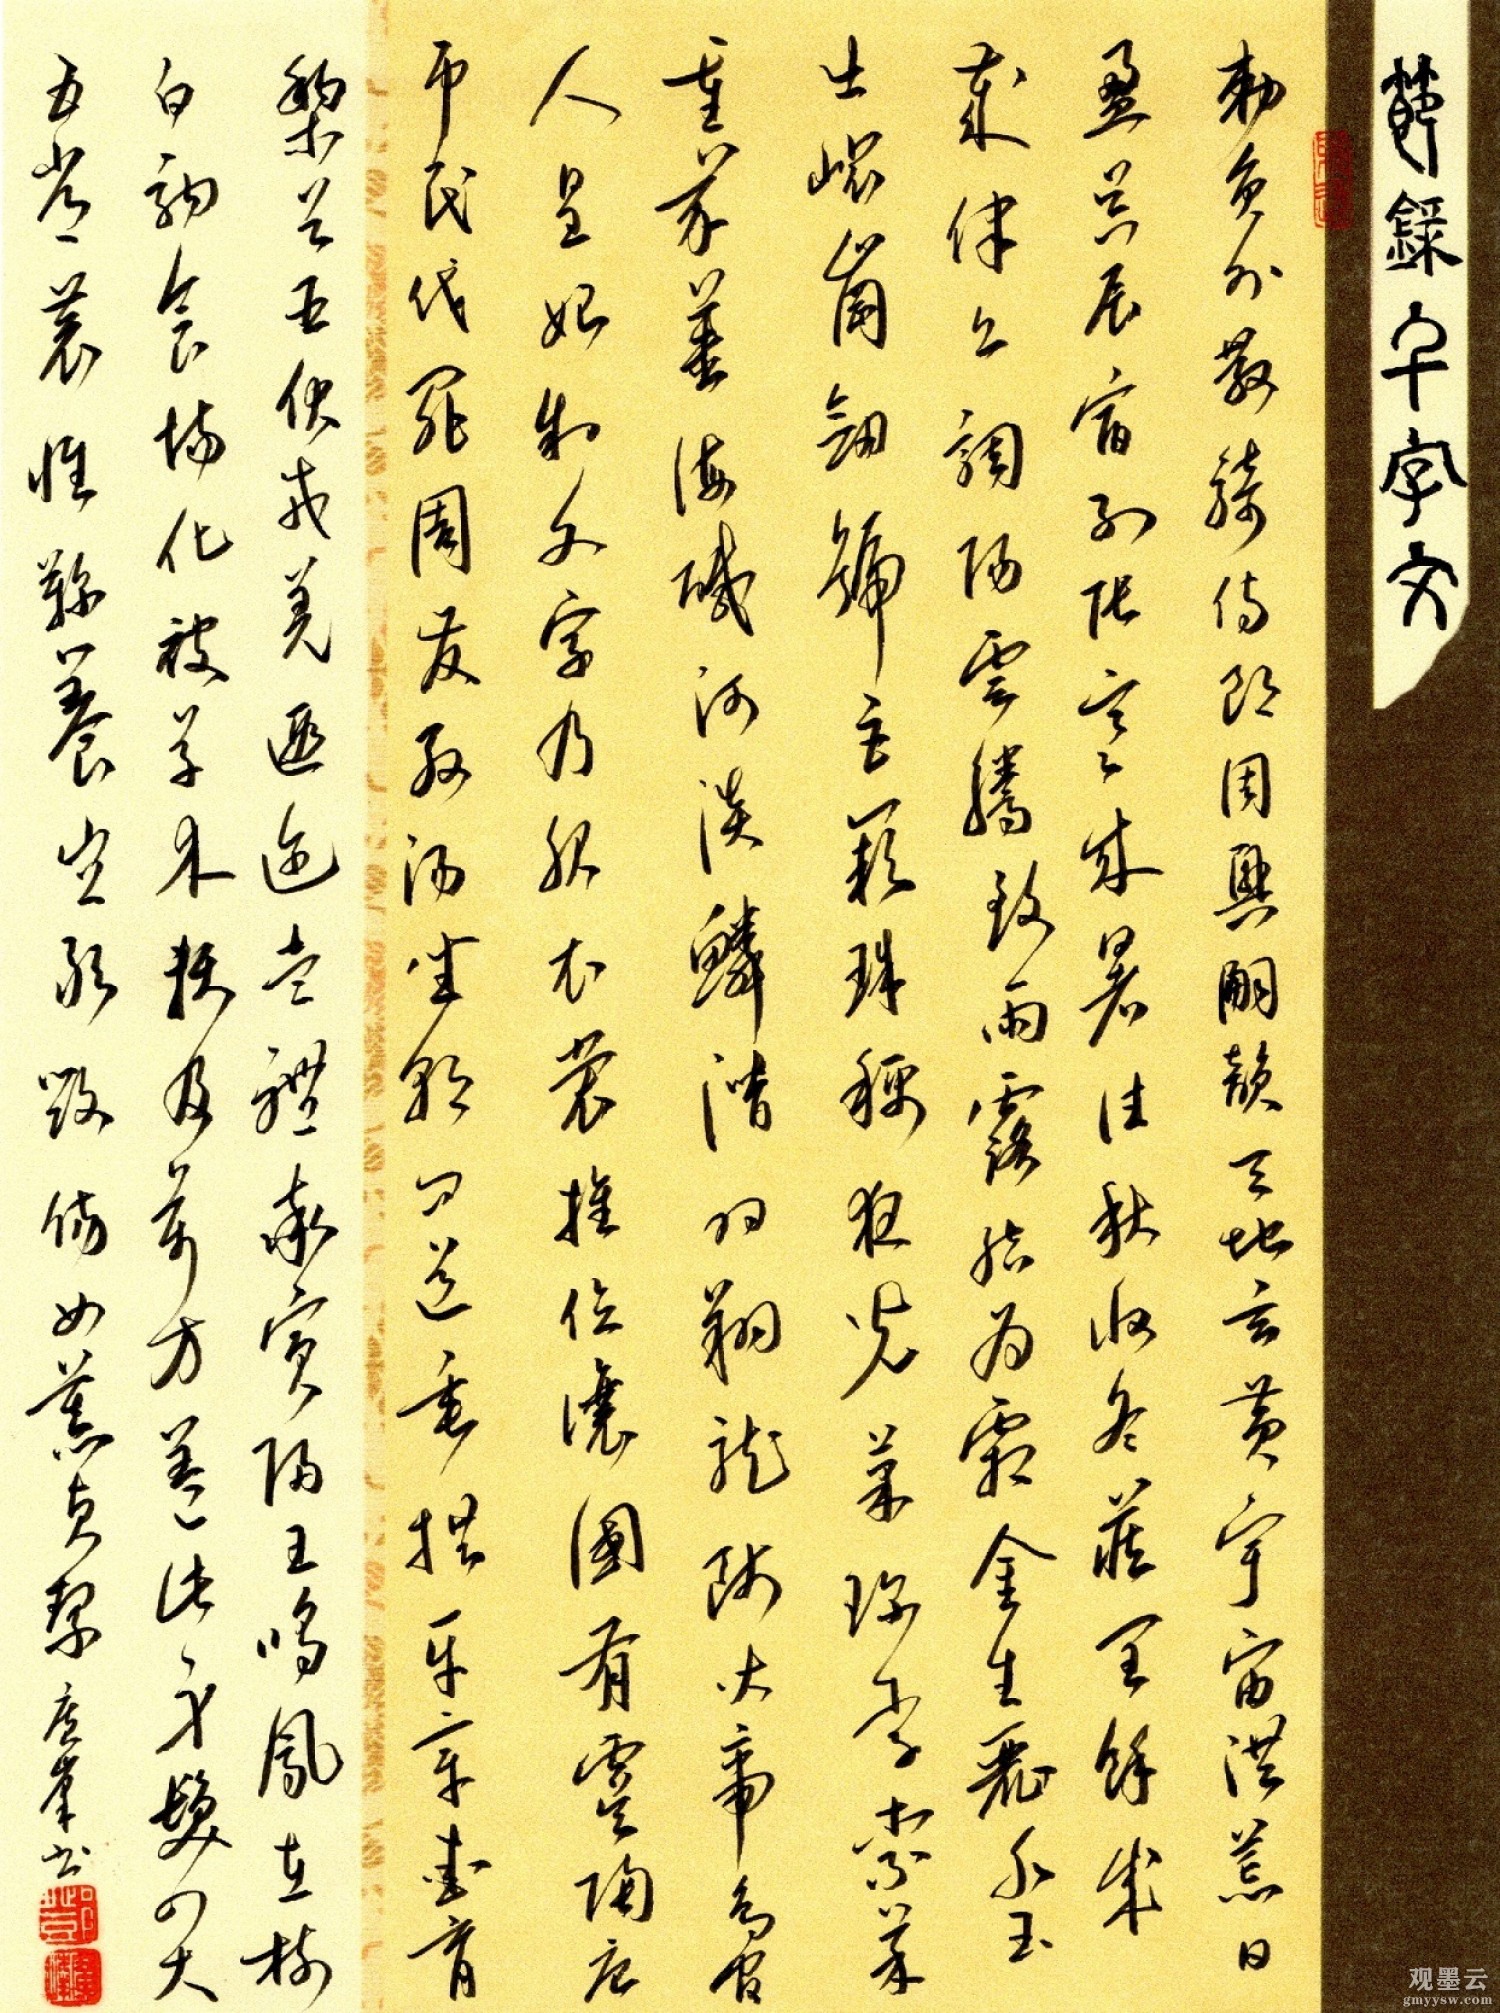 節錄千字文
勅員外散騎侍郎周興嗣韻天地玄黃宇宙洪荒日
盈昃辰宿列張寒来暑往秋收冬藏閏餘成
歲律呂調陽雲騰致雨露結為霜金生麗水玉
出崐崗劍號巨闕珠稱夜光菓珍李柰菜
重芥薑海鹹河淡鱗潛羽翔龍師火帝鳥官
人皇始制文字乃服衣裳推位讓國有虞陶唐
弔民伐罪周發殷湯坐朝問道垂拱平章愛育
黎首臣伏戎羌遐迩壹體率賓歸王鳴鳳在樹
白駒食場化被草木賴及萬方蓋此身髮四大
五常恭惟鞠養豈敢毀傷女慕貞絜 书
观墨云
gmyysw.com